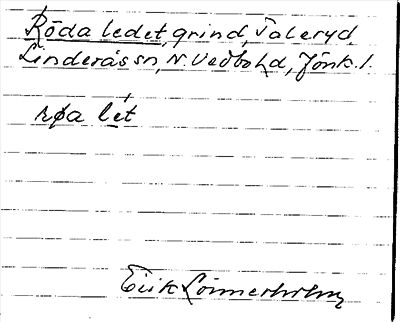 Röda ledet, grind, Taleryd,
Linderås sn, N. Vedbo hd, Jönk. l.
røa lét
Erik Lönnerholm